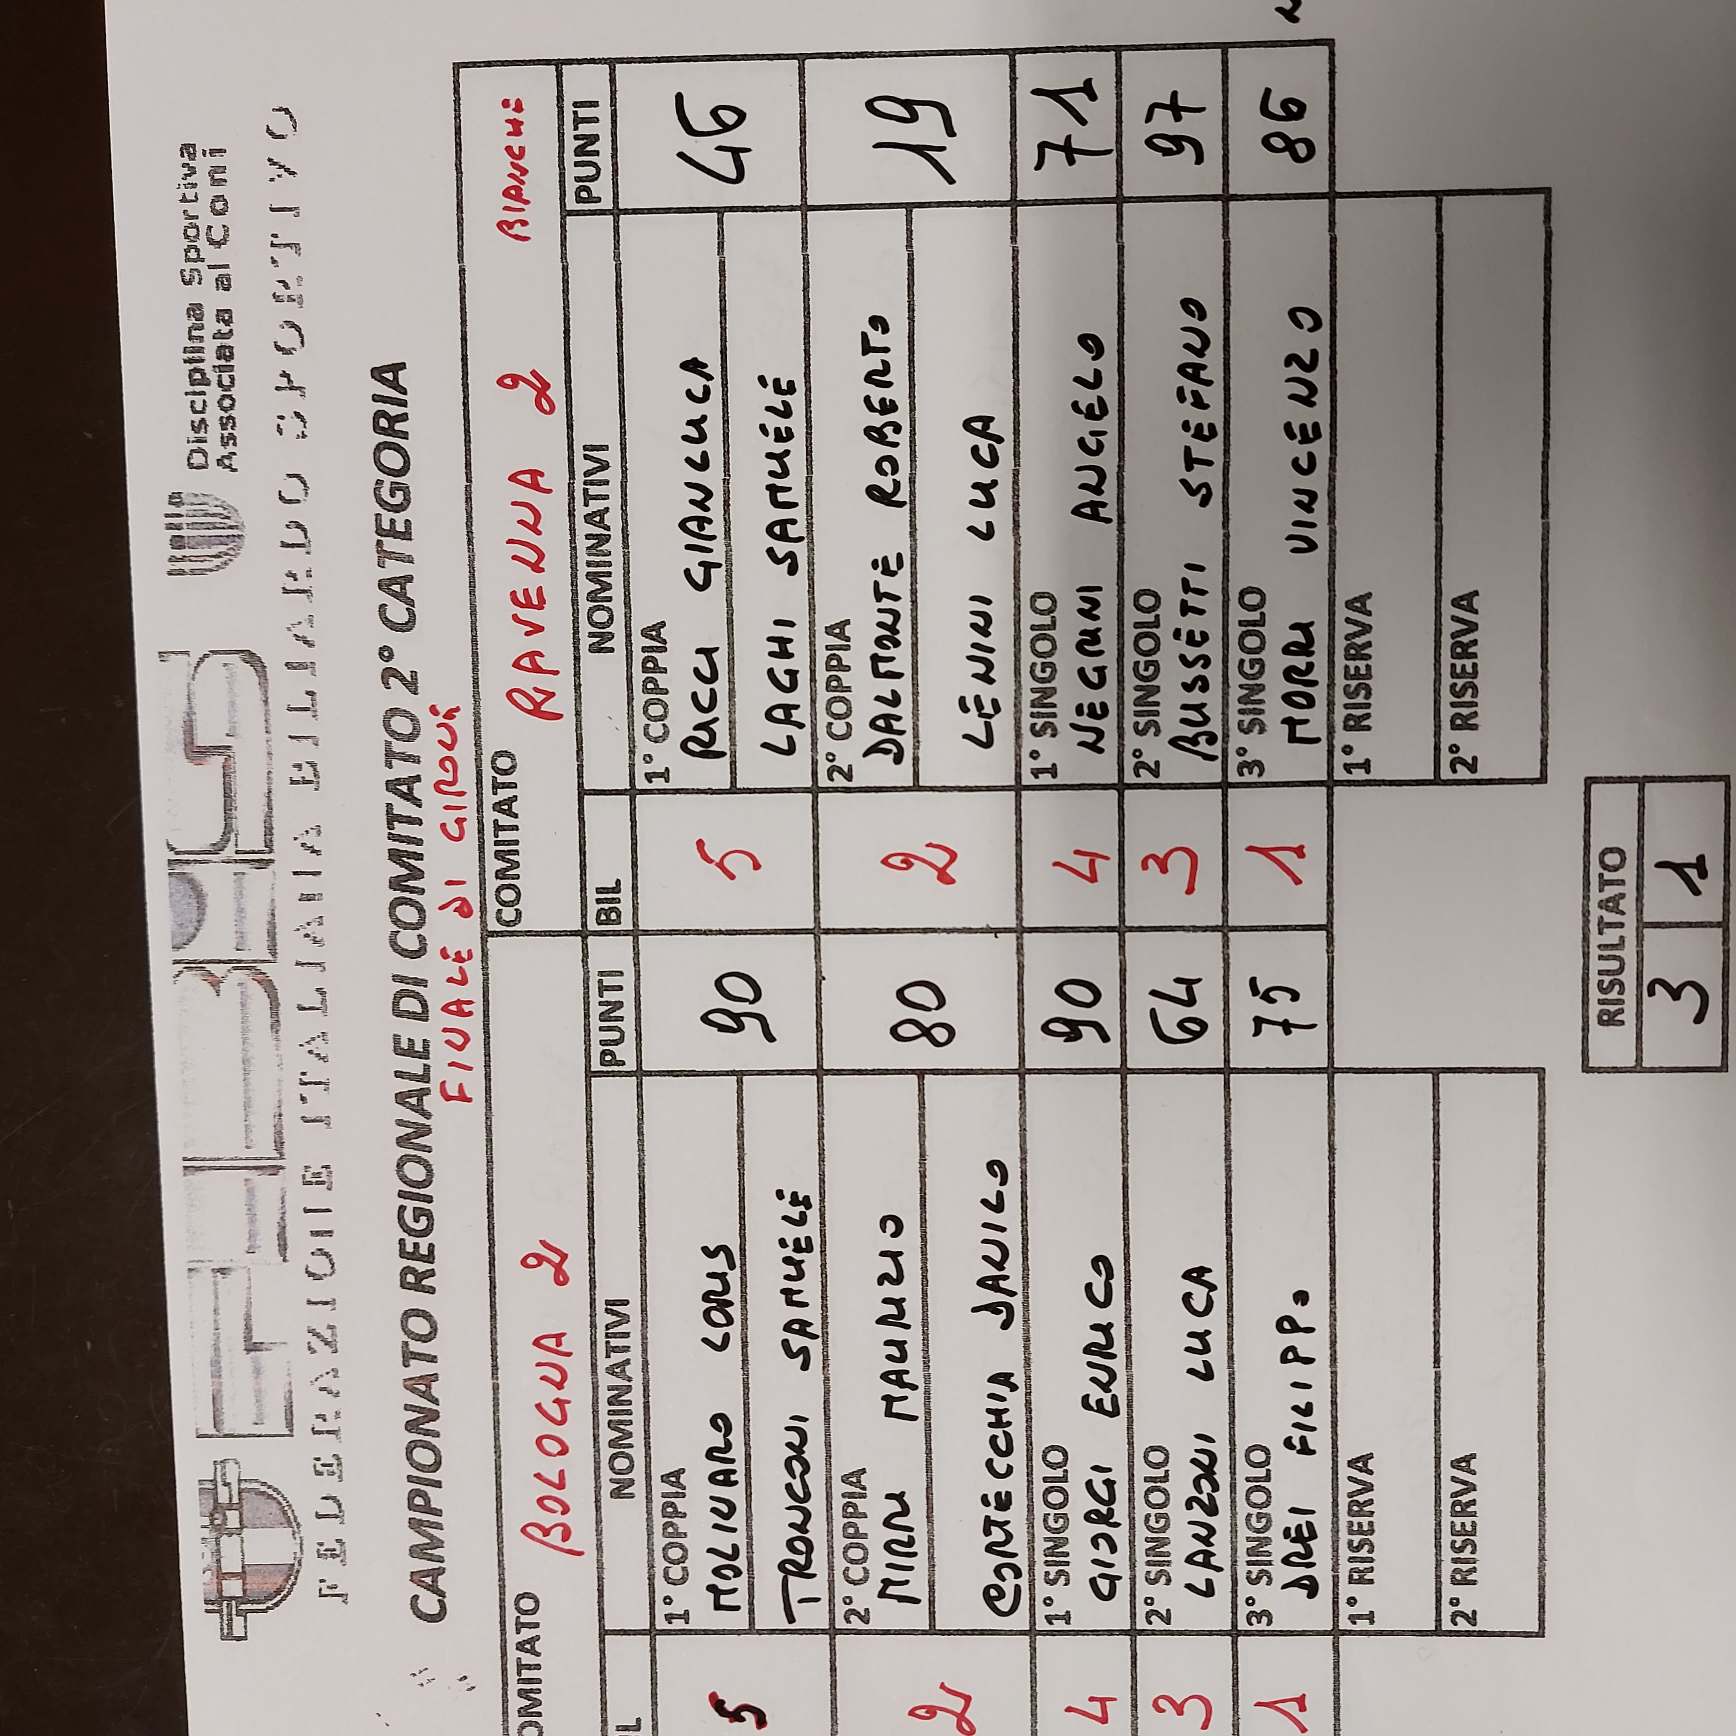 FEDERAZIONE ITALIANA BILIARDO SPORTIVO
Disciplina Sportiva
Associata al Coni
CAMPIONATO REGIONALE DI COMITATO 2° CATEGORIA
FINALE DI GIRONE
OMITATO BOLOGNA 2 COMITATO RAVENNA 2 BIANCHE
L NOMINATIVI PUNTI BIL NOMINATIVI PUNTI
1° COPPIA 1° COPPIA
5 MOLINARO LORIS 90 5 RICCI GIANLUCA 46
TRONCONI SAMUELE LAGHI SAMUELE
2° COPPIA 2° COPPIA
2 MIRRI MAURIZIO 80 2 DALMONTE ROBERTO 19
CORTECCHIA DANILO LENINI LUCA
1° SINGOLO 1° SINGOLO
4 GIORGI ENRICO 90 4 NEGRINI ANGELO 71
2° SINGOLO 2° SINGOLO
3 LANZONI LUCA 64 3 BUSSETTI STEFANO 97
3° SINGOLO 3° SINGOLO
1 DREI FILIPPO 75 1 MORRI VINCENZO 86
1° RISERVA 1° RISERVA
2° RISERVA 2° RISERVA
RISULTATO
3 1